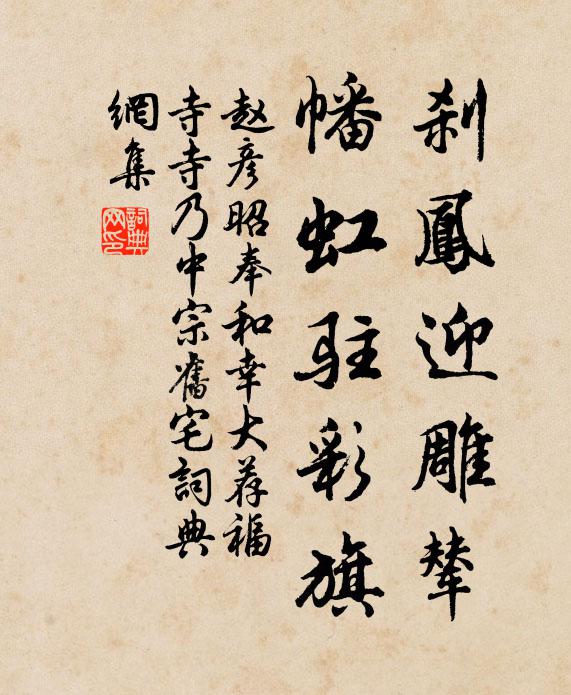 刹鳳迎雕輦
幡虹駐彩旗
赵彦昭奉和幸大荐福
寺寺乃中宗舊宅詞典
網集
詞典
网印